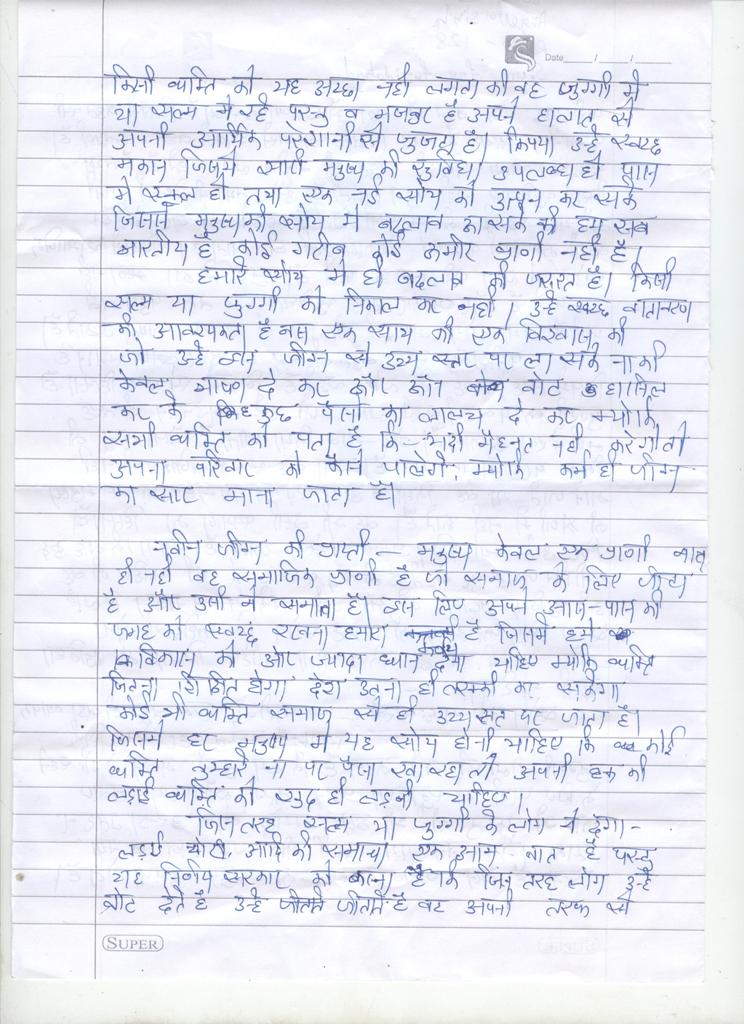 Date
किसी व्यक्ति को यह अच्छा नही लगता की वह जुग्गी मे
या सल्म मे रहे परन्तु व मजबूर है अपने हालात से
अपनी आर्थिक परेशानी से जुजता है। कृपया उन्हे स्वच्छ
मकान जिसमे सारी मनुष्य की सुविधा उपलब्ध हो पास
मे स्कूल हो तथा एक नई सोच को उत्पन कर सके
जिससे मनुष्य की सोच मे बदलाव आ सके की हम सब
भारतीय है कोई गरीब कोई कमोर प्राणी नही है।
हमारे सोच मे ही बदलाव की जरुरत है। किसी
सल्म या जुग्गी को निकाल कर नही। उन्हे स्वच्छ वातावरण
की आवश्यकता है बस एक साथ की एक विश्वास की
जो उन्हे इस जीवन से उच्च स्तर पर ला सके ना की
केवल भाषण दे कर और वोट हासिल
कर के कुछ पैसो का लालच दे कर क्योकि
सभी व्यक्ति को पता है कि मेहनत नही करेगा तो
अपना परिवार को कैसे पालेगे, क्योकि कर्म ही जीवन
का सार माना जाता है।
नवीन जीवन की प्राप्ती - मनुष्य केवल एक प्राणी मात्र
ही नही वह समाजिक प्राणी है जो समाज के लिए जीता
है और उसी मे समाता है। इस लिए अपने आस-पास की
जगह को स्वच्छ रखना हमारा कर्तव्य है जिसमे हमे
विकास की ओर ज्यादा ध्यान देना चाहिए क्योकि व्यक्ति
जितना शिक्षित होगा देश उतना ही तरक्की कर सकेगा।
कोई भी व्यक्ति समाज से ही उच्च स्तर पर जाता है।
जिसमे हर मनुष्य मे यह सोच होनी चाहिए कि कोई
व्यक्ति तुम्हारे ना पर पैसा खा रहा तो अपनी हक की
लडाई व्यक्ति को खुद ही लडनी चाहिए।
जिस तरह सल्म या जुग्गी के लोग मे दंगा-
लडाई चोरी, आदि की समाचा एक आम बात है परन्तु
यह निर्णय सरकार को करना है कि जिस तरह लोग उन्हे
वोट देते है उन्हे जीतते है वह अपनी तरफ से
SUPER